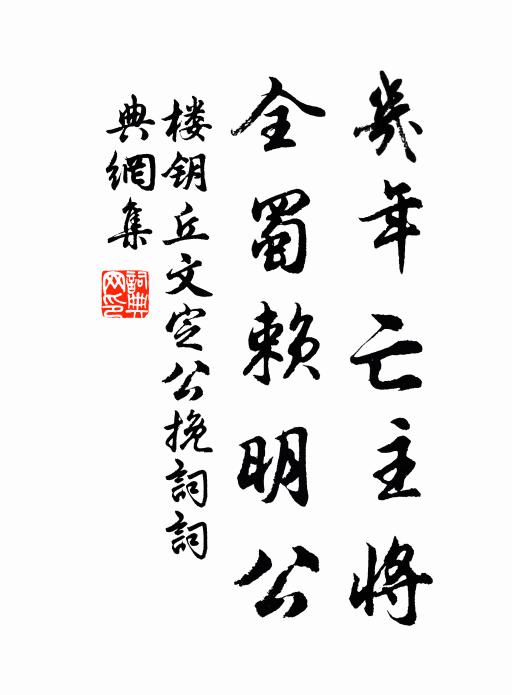 幾年亡主將
全蜀賴明公
楼钥丘文定公挽詞詞
典網集
詞典
网印